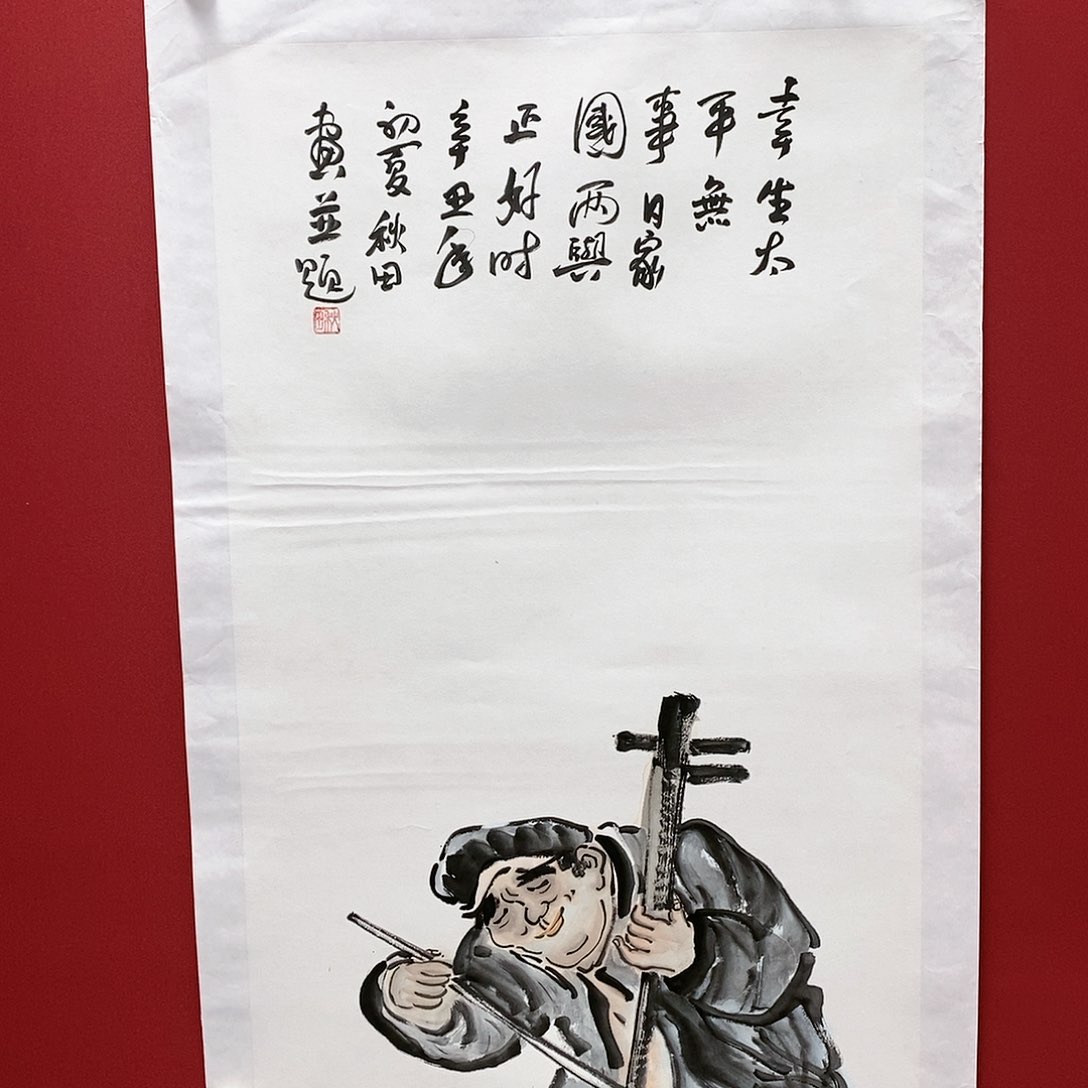 幸生太
平無
事日家
國兩興
正好时
辛丑年
初夏秋田
畫並題
秋田